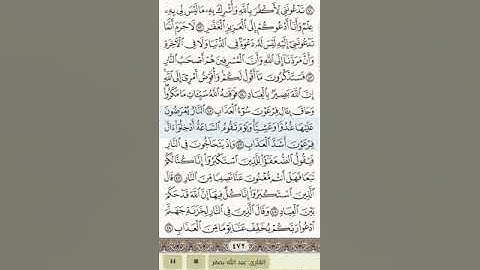 تَدْعُونَنِي لِأَكْفُرَ بِاللَّهِ وَأُشْرِكَ بِهِ مَا لَيْسَ لِي بِهِ
عِلْمٌ وَأَنَا أَدْعُوكُمْ إِلَى الْعَزِيزِ الْغَفَّارِ ٤٢ لَا جَرَمَ أَنَّمَا
تَدْعُونَنِي إِلَيْهِ لَيْسَ لَهُ دَعْوَةٌ فِي الدُّنْيَا وَلَا فِي الْآخِرَةِ
وَأَنَّ مَرَدَّنَا إِلَى اللَّهِ وَأَنَّ الْمُسْرِفِينَ هُمْ أَصْحَابُ النَّارِ
٤٣ فَسَتَذْكُرُونَ مَا أَقُولُ لَكُمْ وَأُفَوِّضُ أَمْرِي إِلَى اللَّهِ
إِنَّ اللَّهَ بَصِيرٌ بِالْعِبَادِ ٤٤ فَوَقَاهُ اللَّهُ سَيِّئَاتِ مَا مَكَرُوا
وَحَاقَ بِآلِ فِرْعَوْنَ سُوءُ الْعَذَابِ ٤٥ النَّارُ يُعْرَضُونَ
عَلَيْهَا غُدُوًّا وَعَشِيًّا وَيَوْمَ تَقُومُ السَّاعَةُ أَدْخِلُوا آلَ
فِرْعَوْنَ أَشَدَّ الْعَذَابِ ٤٦ وَإِذْ يَتَحَاجُّونَ فِي النَّارِ
فَيَقُولُ الضُّعَفَاءُ لِلَّذِينَ اسْتَكْبَرُوا إِنَّا كُنَّا لَكُمْ
تَبَعًا فَهَلْ أَنْتُمْ مُغْنُونَ عَنَّا نَصِيبًا مِنَ النَّارِ ٤٧ قَالَ
الَّذِينَ اسْتَكْبَرُوا إِنَّا كُلٌّ فِيهَا إِنَّ اللَّهَ قَدْ حَكَمَ
بَيْنَ الْعِبَادِ ٤٨ وَقَالَ الَّذِينَ فِي النَّارِ لِخَزَنَةِ جَهَنَّمَ
ادْعُوا رَبَّكُمْ يُخَفِّفْ عَنَّا يَوْمًا مِنَ الْعَذَابِ ٤٩
٤٧٢
القارئ: عبد الله بصفر